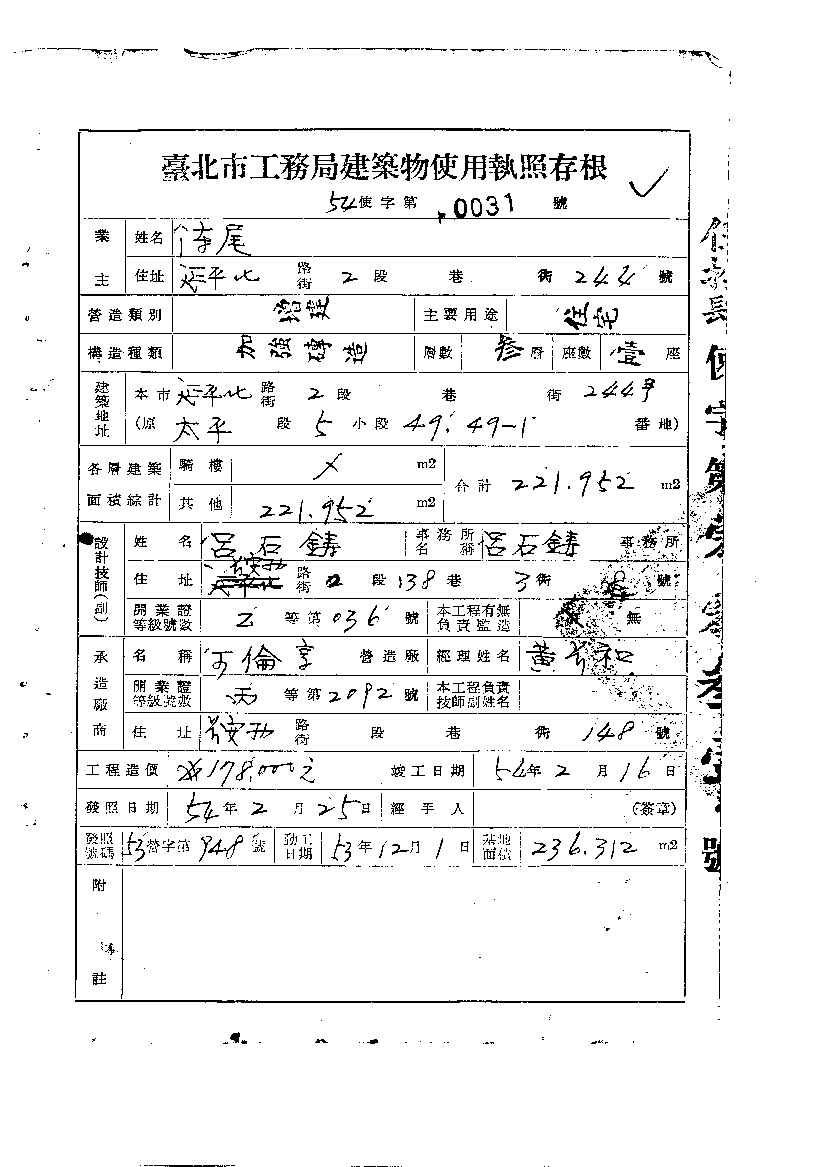 臺北市工務局建築物使用執照存根
54使字第0031號
業主 姓名 陳尾
住址 延平北路街2段 巷 街244號
營造類別 增建 主要用途 住宅
構造種類 加強磚造 層數 叁層 座數 壹座
建築地址 本市延平北路街2段 巷 街244號
(原太平段5小段49.49-1 番地)
各層建築面積綜計 騎樓 m2 合計221.952m2
其他221.952m2
設計技師(副) 姓名 呂石鑄 事務所名稱 呂石鑄事務所
住址 路街 段138巷3街 號
開業證等級號數 乙等第036號 本工程有無負責監造 無
承造廠商 名稱 營造廠 經理姓名
開業證等級號數 丙等第2092號 本工程負責技師副姓名
住址 路街 段 巷 街148號
工程造價 178,000元 竣工日期 54年2月16日
發照日期 54年2月25日 經手人 (簽章)
發照號碼 53營字第948號 動工日期 53年12月1日 基地面積 236.312m2
附註